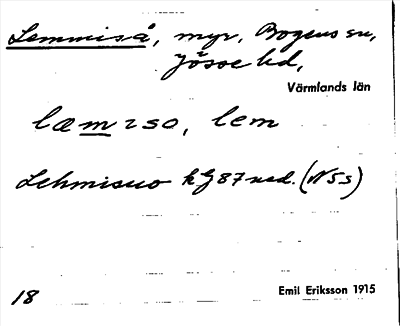 Lemmiså, myr, Bogens sn,
Jösse hd,
Värmlands län
læmiso, lem
Lehmisuo kJ 87 nsd. (N5s)
18
Emil Eriksson 1915